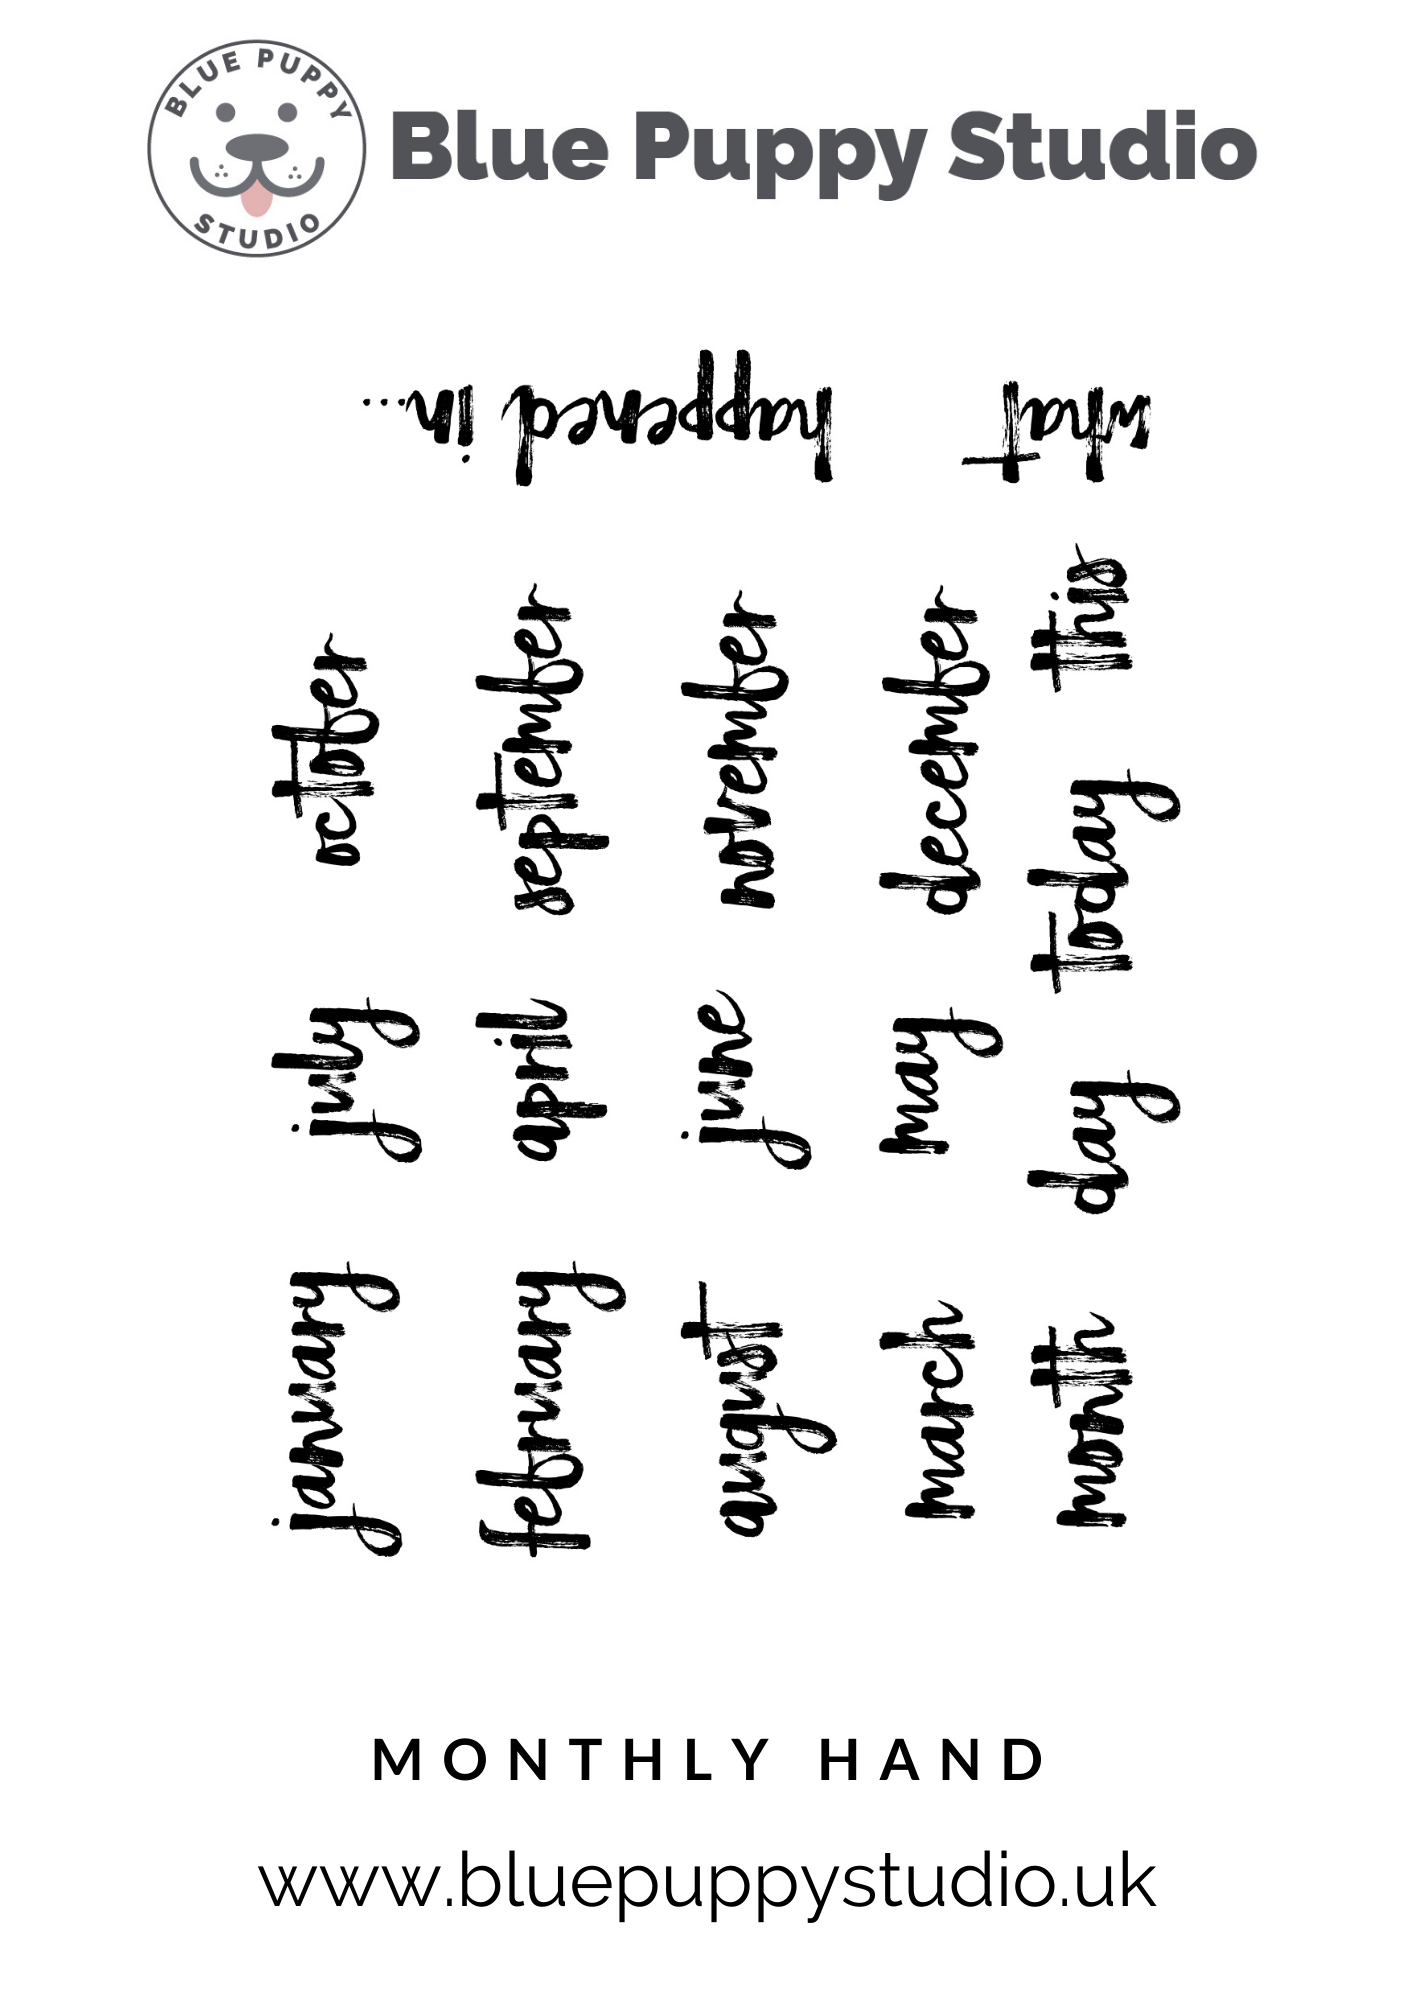 BLUE PUPPY
STUDIO
Blue Puppy Studio
what
happened in...
october
september
november
december
this
today
july
april
june
may
day
january
february
august
march
month
MONTHLY HAND
www.bluepuppystudio.uk